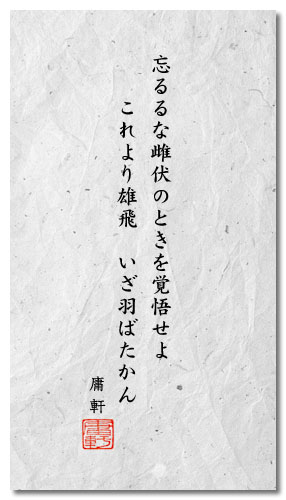 忘るるな雌伏のときを覚悟せよ
これより雄飛　いざ羽ばたかん
庸軒
庸軒